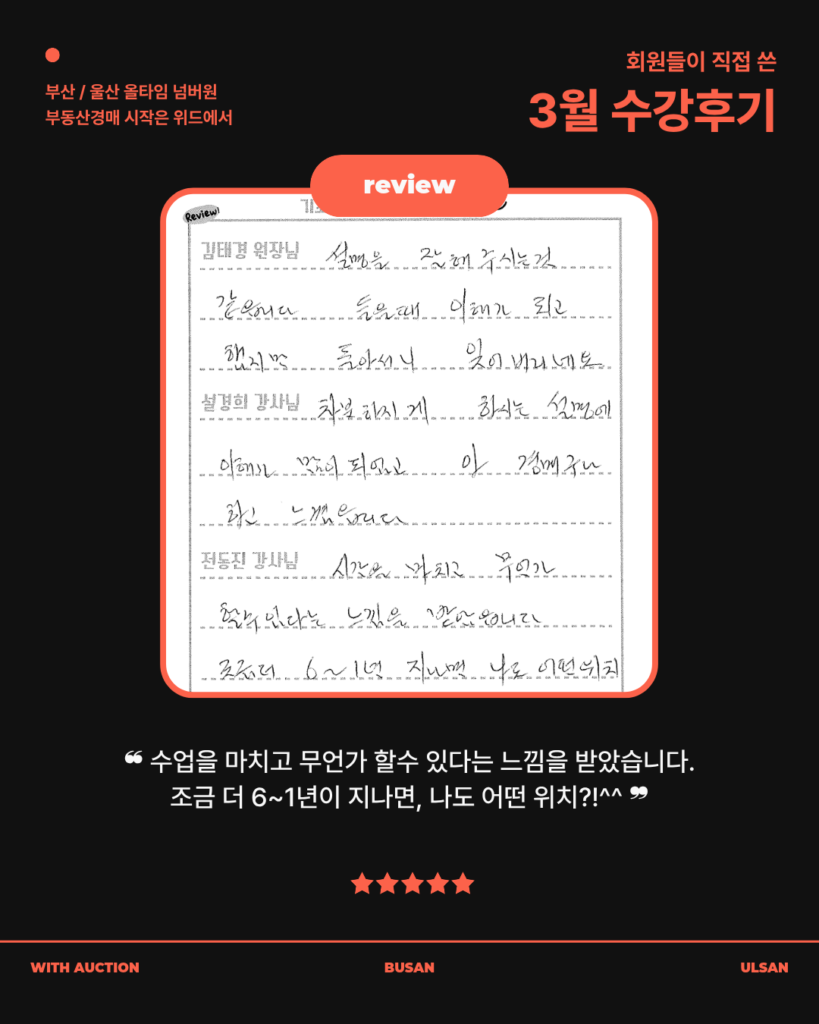 부산 / 울산 올타임 넘버원
부동산경매 시작은 위드에서
회원들이 직접 쓴
3월 수강후기
review
Review!
김태경 원장님 설명을 잘해 주시는것
같습니다 들을때 이해가 되고
했지만 돌아서니 잊어버리네요
설경희 강사님 차분하시게 하시는 설명에
이해가 많이 되었고 아 경매구나
하고 느꼈습니다
전동진 강사님 마치고 무언가
할수있다는 느낌을 받았습니다
조금더 6~1년 지나면 나도 어떤위치
❝ 수업을 마치고 무언가 할수 있다는 느낌을 받았습니다.
조금 더 6~1년이 지나면, 나도 어떤 위치?!^^ ❞
WITH AUCTION
BUSAN
ULSAN